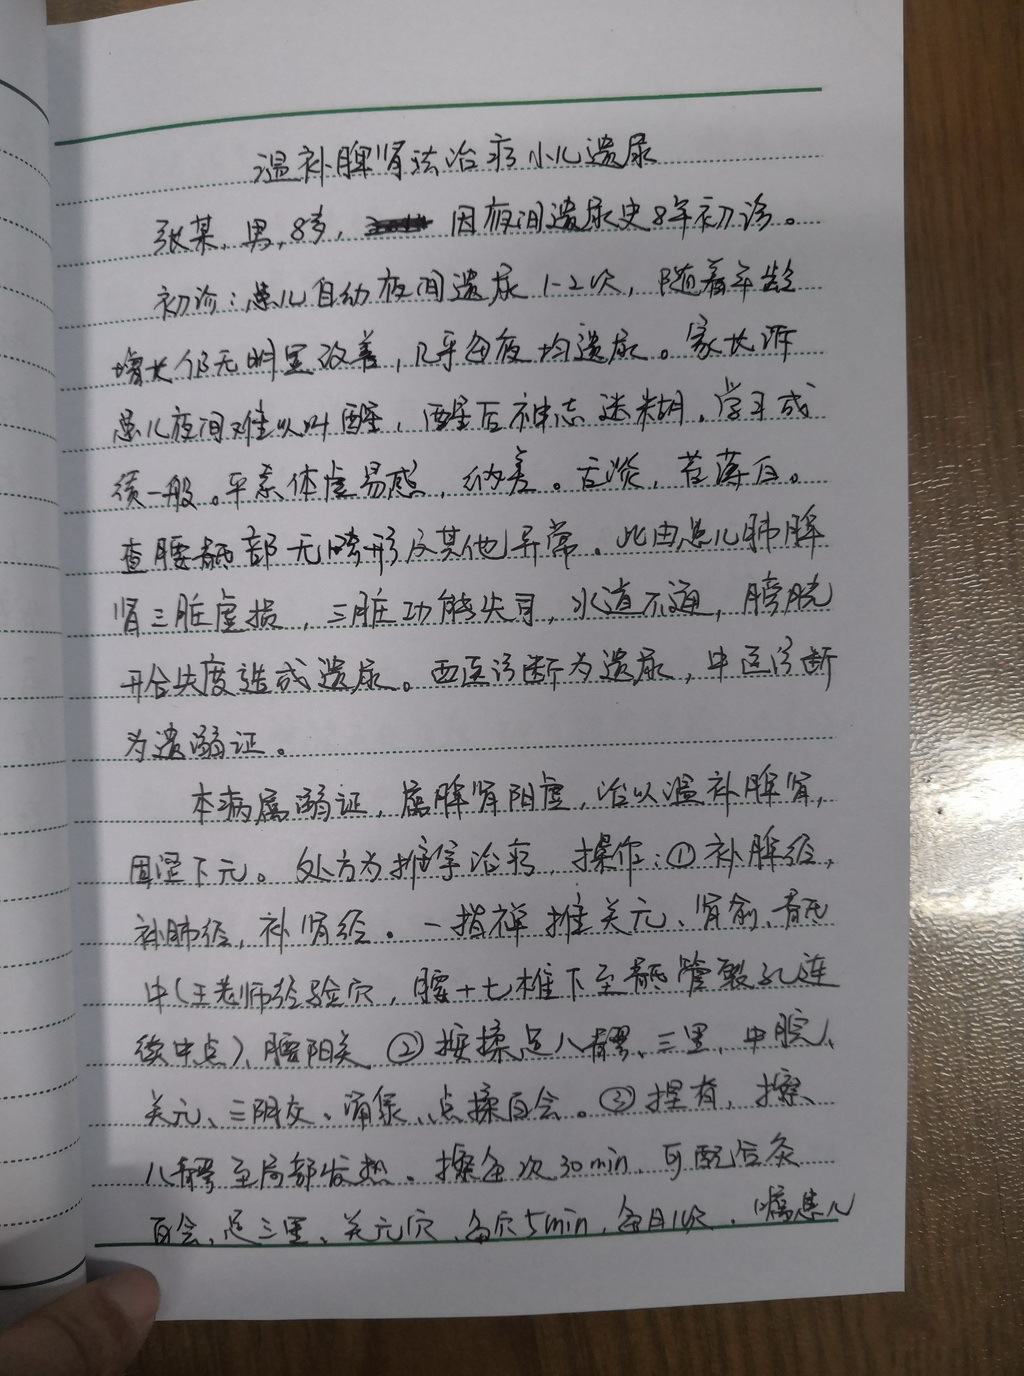 温补脾肾法治疗小儿遗尿
张某,男,8岁, 因夜间遗尿史8年初诊。
初诊:患儿自幼夜间遗尿1-2次,随着年龄
增长仍无明显改善,几乎每夜均遗尿。家长诉
患儿夜间难以叫醒,醒后神志迷糊,学习成
绩一般。平素体虚易感,纳差。舌淡,苔薄白。
查腰骶部无畸形及其他异常。此由患儿肺脾
肾三脏虚损,三脏功能失司,水道不通,膀胱
开合失度造成遗尿。西医诊断为遗尿,中医诊断
为遗溺证。
本病属溺证,属脾肾阳虚,治以温补脾肾,
固涩下元。处方为推拿治疗,操作:①补脾经,
补肺经,补肾经。一指禅推关元、肾俞、骶
中(王老师经验穴,腰十七椎下至骶管裂孔连
线中点)、腰阳关 ②按揉足八髎、三里、中脘、
关元、三阴交、涌泉、点揉百会。③捏脊,擦
八髎至局部发热。擦每次30min,可配合灸
百会、足三里、关元穴,每穴5min,每日1次,嘱患儿